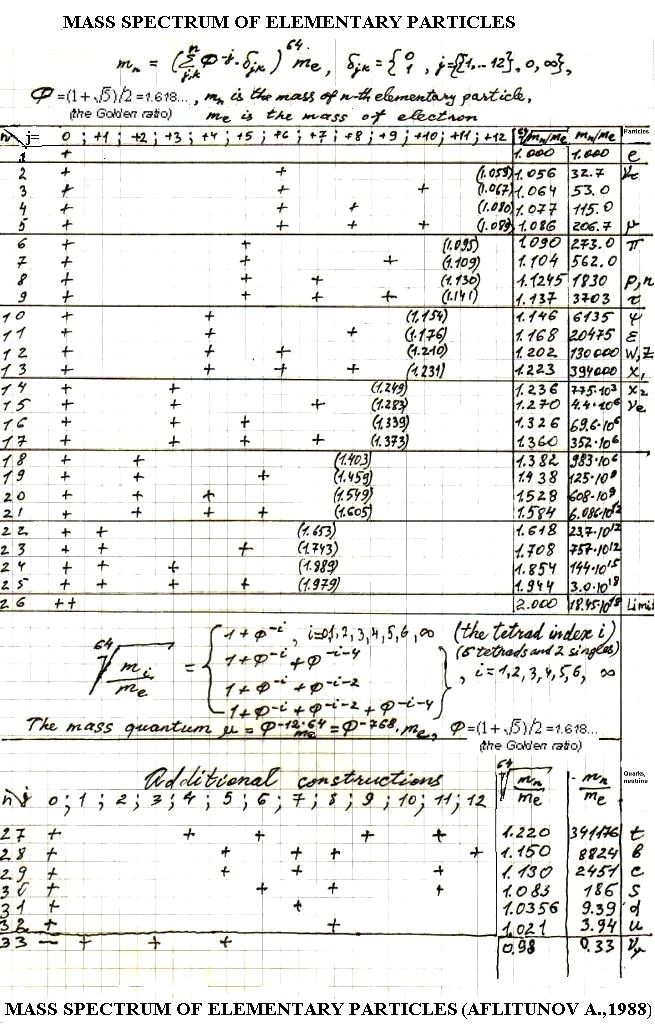 MASS SPECTRUM OF ELEMENTARY PARTICLES
mₙ = (Σⁿⱼ,ₖ Φ⁻ʲ·δⱼₖ)⁶⁴· mₑ, δⱼₖ = {0 1 , j={[1,..12], 0, ∞},
Φ =(1+√5)/2=1.618..., mₙ is the mass of n-th elementary particle,
(the Golden ratio) mₑ is the mass of electron
n j= 0 ; +1 ; +2 ; +3 ; +4 ; +5 ; +6 ; +7 ; +8 ; +9 ; +10 ; +11 ; +12 ⁶⁴√mₙ/mₑ mₙ/mₑ Particles
1 + 1.000 1.000 e
2 + + (1.059) 1.056 32.7
3 + + + (1.067) 1.064 53.0
4 + + + (1.080) 1.077 115.0
5 + + + + (1.089) 1.086 206.7 μ
6 + + (1.095) 1.090 273.0 π
7 + + + (1.109) 1.104 562.0
8 + + + (1.130) 1.1245 1830 p,n
9 + + + + (1.141) 1.137 3703 τ
10 + + (1.154) 1.146 6135 Ψ
11 + + + (1.176) 1.168 20475 ε
12 + + + (1.210) 1.202 130000 W,Z
13 + + + + (1.231) 1.223 394000 X₁
14 + + (1.249) 1.236 775·10³ X₂
15 + + + (1.283) 1.270 4.4·10⁶ νe
16 + + + (1.339) 1.326 69.6·10⁶
17 + + + + (1.373) 1.360 352·10⁶
18 + + (1.403) 1.382 983·10⁶
19 + + + (1.459) 1.438 125·10⁹
20 + + + (1.549) 1.528 608·10⁹
21 + + + + (1.605) 1.584 6.086·10¹²
22 + + (1.653) 1.618 23.7·10¹²
23 + + + (1.743) 1.708 757·10¹²
24 + + + (1.889) 1.854 144·10¹⁵
25 + + + + (1.979) 1.944 3.0·10¹⁸
26 ++ 2.000 18.45·10¹⁸ Limit
⁶⁴√mᵢ/mₑ = {
1+Φ⁻ⁱ, i=0,1,2,3,4,5,6,∞ (the tetrad index i)
1+Φ⁻ⁱ+Φ⁻ⁱ⁻⁴ (6 tetrads and 2 singles)
1+Φ⁻ⁱ+Φ⁻ⁱ⁻² , i=1,2,3,4,5,6, ∞
1+Φ⁻ⁱ+Φ⁻ⁱ⁻²+Φ⁻ⁱ⁻⁴ }
The mass quantum μ = Φ⁻¹²·⁶⁴ mₑ = Φ⁻⁷⁶⁸· mₑ, Φ =(1+√5)/2 =1.618...
(the Golden ratio)
Additional constructions ⁶⁴√mₙ/mₑ mₙ/mₑ Quarks, neutrino
n j 0 ; 1 ; 2 ; 3 ; 4 ; 5 ; 6 ; 7 ; 8 ; 9 ; 10 ; 11 ; 12
27 + + + + + 1.220 341176 t
28 + + + + + 1.150 8824 b
29 + + + + 1.130 2451 c
30 + + + + 1.083 186 s
31 + + 1.0356 9.39 d
32 + + 1.021 3.94 u
33 − + + + 0.98 0.33 νμ
MASS SPECTRUM OF ELEMENTARY PARTICLES (AFLITUNOV A.,1988)